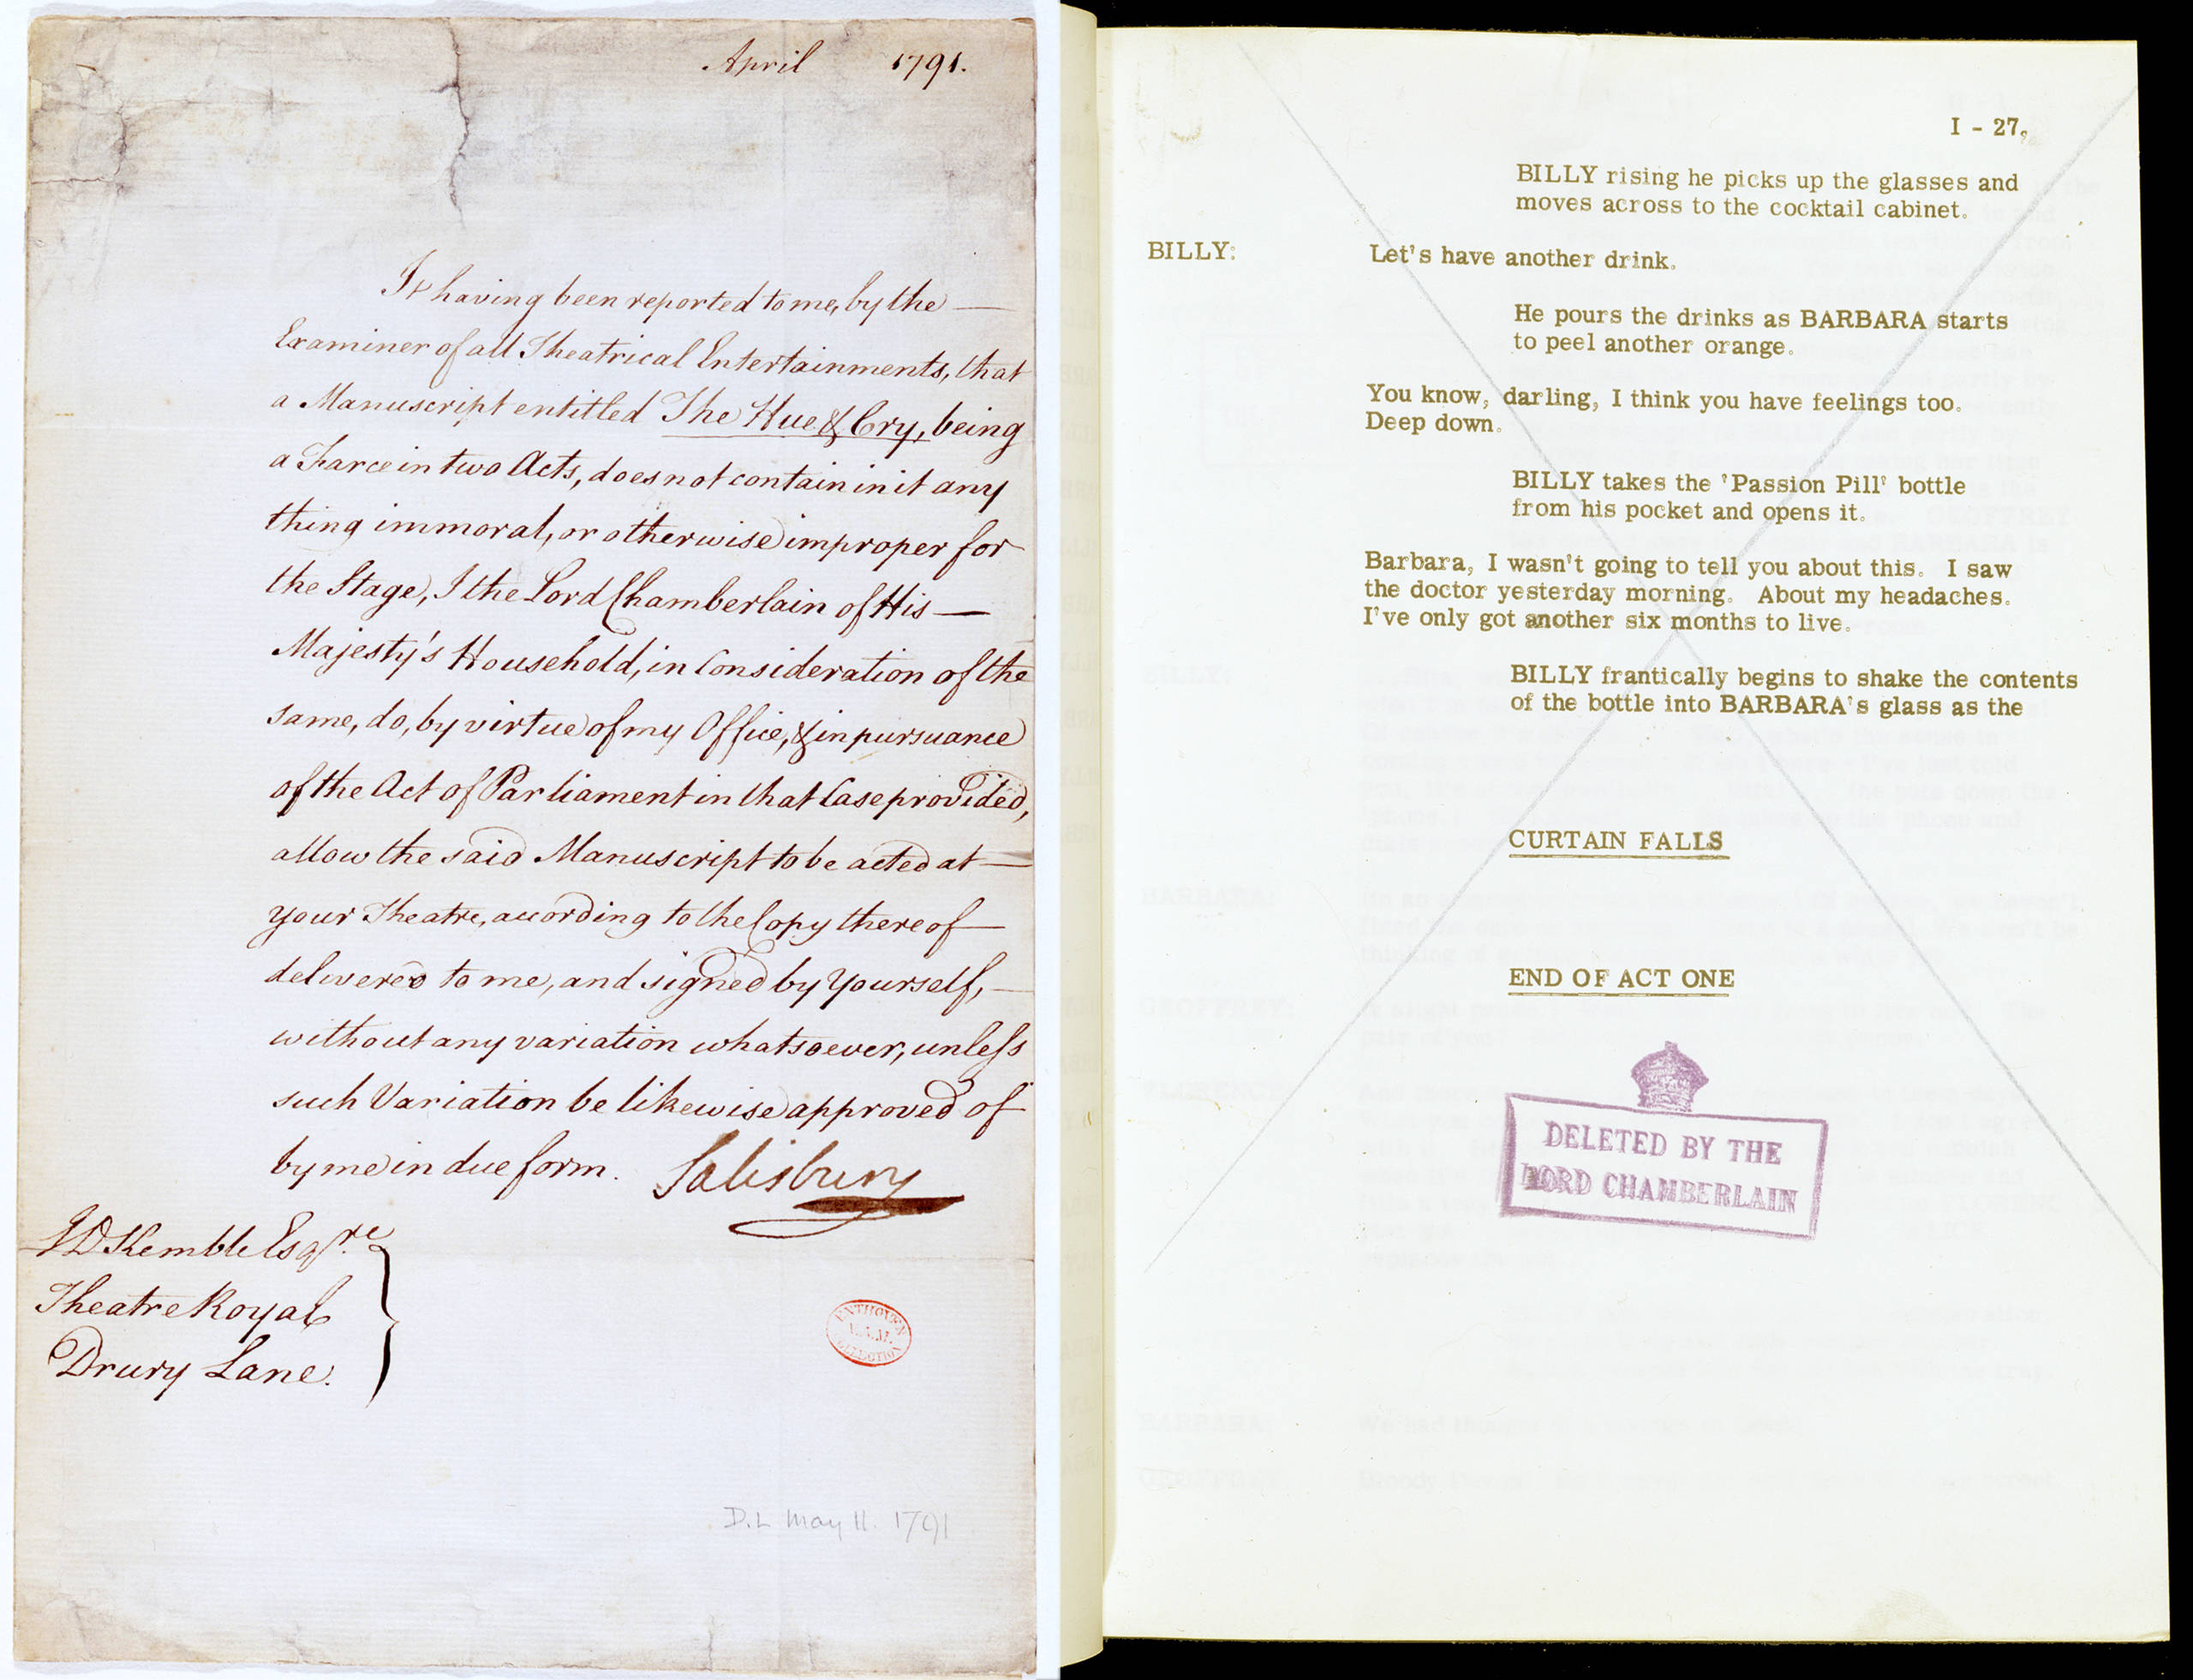 April 1791.
It having been reported to me, by the
Examiner of all Theatrical Entertainments, that
a Manuscript entitled The Hue & Cry, being
a Farce in two Acts, does not contain in it any
thing immoral, or otherwise improper for
the Stage, I the Lord Chamberlain of His
Majesty's Household, in Consideration of the
same, do, by virtue of my Office, & in pursuance
of the Act of Parliament in that Case provided,
allow the said Manuscript to be acted at
your Theatre, according to the Copy thereof
delivered to me, and signed by Yourself,
without any variation whatsoever, unless
such Variation be likewise approved of
by me in due form. Salisbury
J P Kemble Esqre.
Theatre Royal
Drury Lane.
ENTHOVEN
COLLECTION
D.L May 11. 1791
I - 27.
BILLY rising he picks up the glasses and
moves across to the cocktail cabinet.
BILLY: Let's have another drink.
He pours the drinks as BARBARA starts
to peel another orange.
You know, darling, I think you have feelings too.
Deep down.
BILLY takes the 'Passion Pill' bottle
from his pocket and opens it.
Barbara, I wasn't going to tell you about this. I saw
the doctor yesterday morning. About my headaches.
I've only got another six months to live.
BILLY frantically begins to shake the contents
of the bottle into BARBARA's glass as the
CURTAIN FALLS
END OF ACT ONE
DELETED BY THE
LORD CHAMBERLAIN